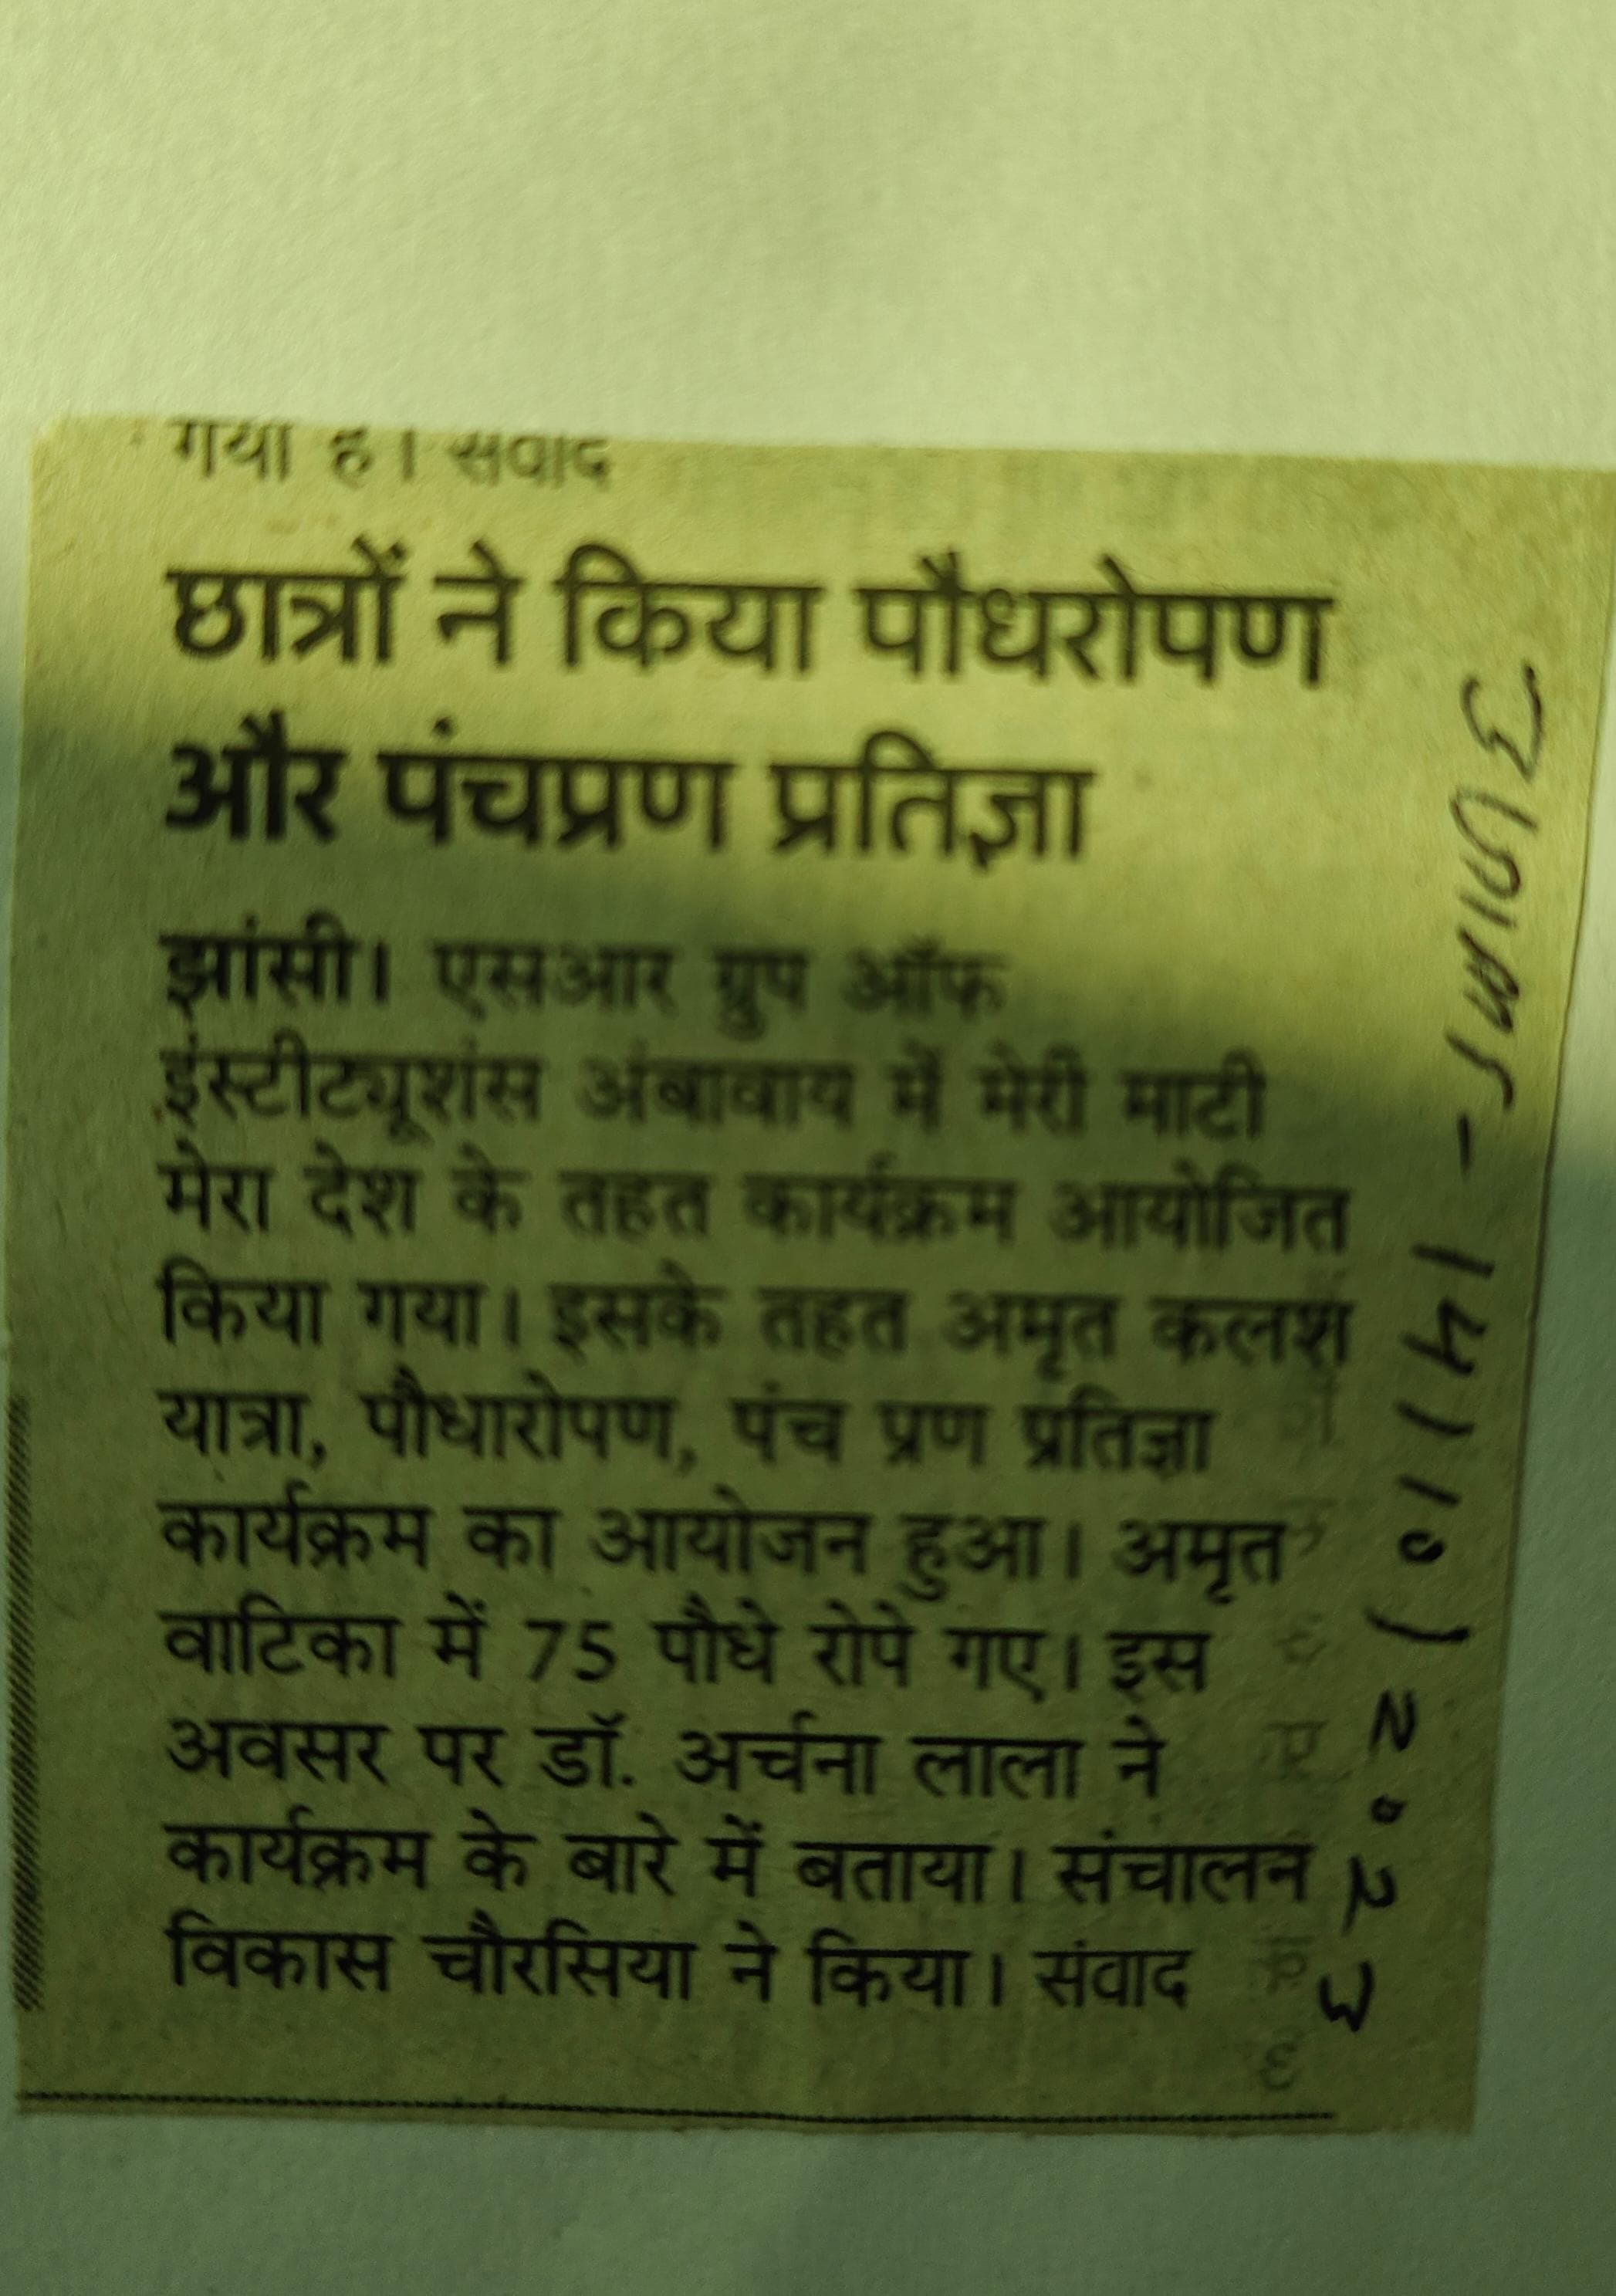 गया है। संवाद
छात्रों ने किया पौधरोपण
और पंचप्रण प्रतिज्ञा
झांसी। एसआर ग्रुप ऑफ
इंस्टीट्यूशंस अंबावाय में मेरी माटी
मेरा देश के तहत कार्यक्रम आयोजित
किया गया। इसके तहत अमृत कलश
यात्रा, पौधारोपण, पंच प्रण प्रतिज्ञा
कार्यक्रम का आयोजन हुआ। अमृत
वाटिका में 75 पौधे रोपे गए। इस
अवसर पर डॉ. अर्चना लाला ने
कार्यक्रम के बारे में बताया। संचालन
विकास चौरसिया ने किया। संवाद
14/10/2023